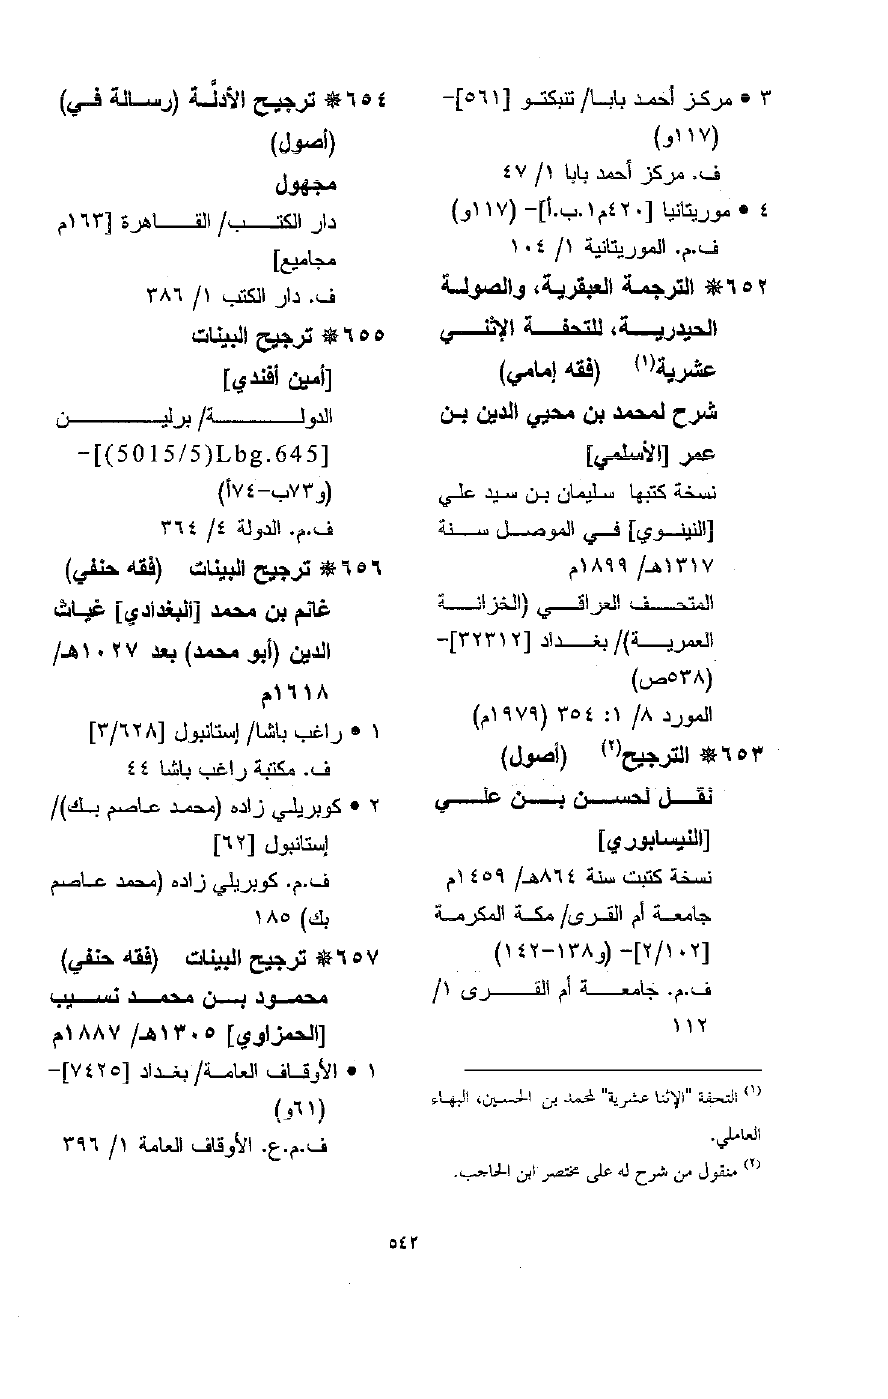 ٣ • مركز أحمد بابا/ تنبكتو [٥٦١]-
(١١٧و)
ف. مركز أحمد بابا ١/ ٤٧
٤ • موريتانيا [٤٢٠م١.ب.أ]- (١١٧و)
ف.م. الموريتانية ١/ ١٠٤
٦٥٢* الترجمة العبقرية، والصولة
الحيدرية، للتحفة الإثني
عشرية(١) (فقه إمامي)
شرح لمحمد بن محيي الدين بن
عمر [الأسلمي]
نسخة كتبها سليمان بن سيد علي
[النينوي] في الموصل سنة
١٣١٧هـ/ ١٨٩٩م
المتحف العراقي (الخزانة
العمرية)/ بغداد [٣٢٣١٢]-
(٥٣٨ص)
المورد ٨/ ١: ٣٥٤ (١٩٧٩م)
٦٥٣* الترجيح(٢) (أصول)
نقل لحسن بن علي
[النيسابوري]
نسخة كتبت سنة ٨٦٤هـ/ ١٤٥٩م
جامعة أم القرى/ مكة المكرمة
[٢/١٠٢]- (و١٣٨-١٤٢)
ف.م. جامعة أم القرى ١/
١١٢
(١) التحفة "الإثنا عشرية" لمحمد بن الحسين، البهاء
العاملي.
(٢) منقول من شرح له على مختصر ابن الحاجب.
٦٥٤* ترجيح الأدلَّة (رسالة في)
(أصول)
مجهول
دار الكتب/ القاهرة [١٦٣م
مجاميع]
ف. دار الكتب ١/ ٣٨٦
٦٥٥* ترجيح البينات
[أمين أفندي]
الدولة/ برلين
[Lbg.645(5015/5)]-
(و٧٣ب-٧٤أ)
ف.م. الدولة ٤/ ٣٦٤
٦٥٦* ترجيح البينات (فقه حنفي)
غانم بن محمد [البغدادي] غياث
الدين (أبو محمد) بعد ١٠٢٧هـ/
١٦١٨م
١ • راغب باشا/ إستانبول [٣/٦٢٨]
ف. مكتبة راغب باشا ٤٤
٢ • كوبريلي زاده (محمد عاصم بك)/
إستانبول [٦٢]
ف.م. كوبريلي زاده (محمد عاصم
بك) ١٨٥
٦٥٧* ترجيح البينات (فقه حنفي)
محمود بن محمد نسيب
[الحمزاوي] ١٣٠٥هـ/ ١٨٨٧م
١ • الأوقاف العامة/ بغداد [٧٤٢٥]-
(٦١و)
ف.م.ع. الأوقاف العامة ١/ ٣٩٦
٥٤٢